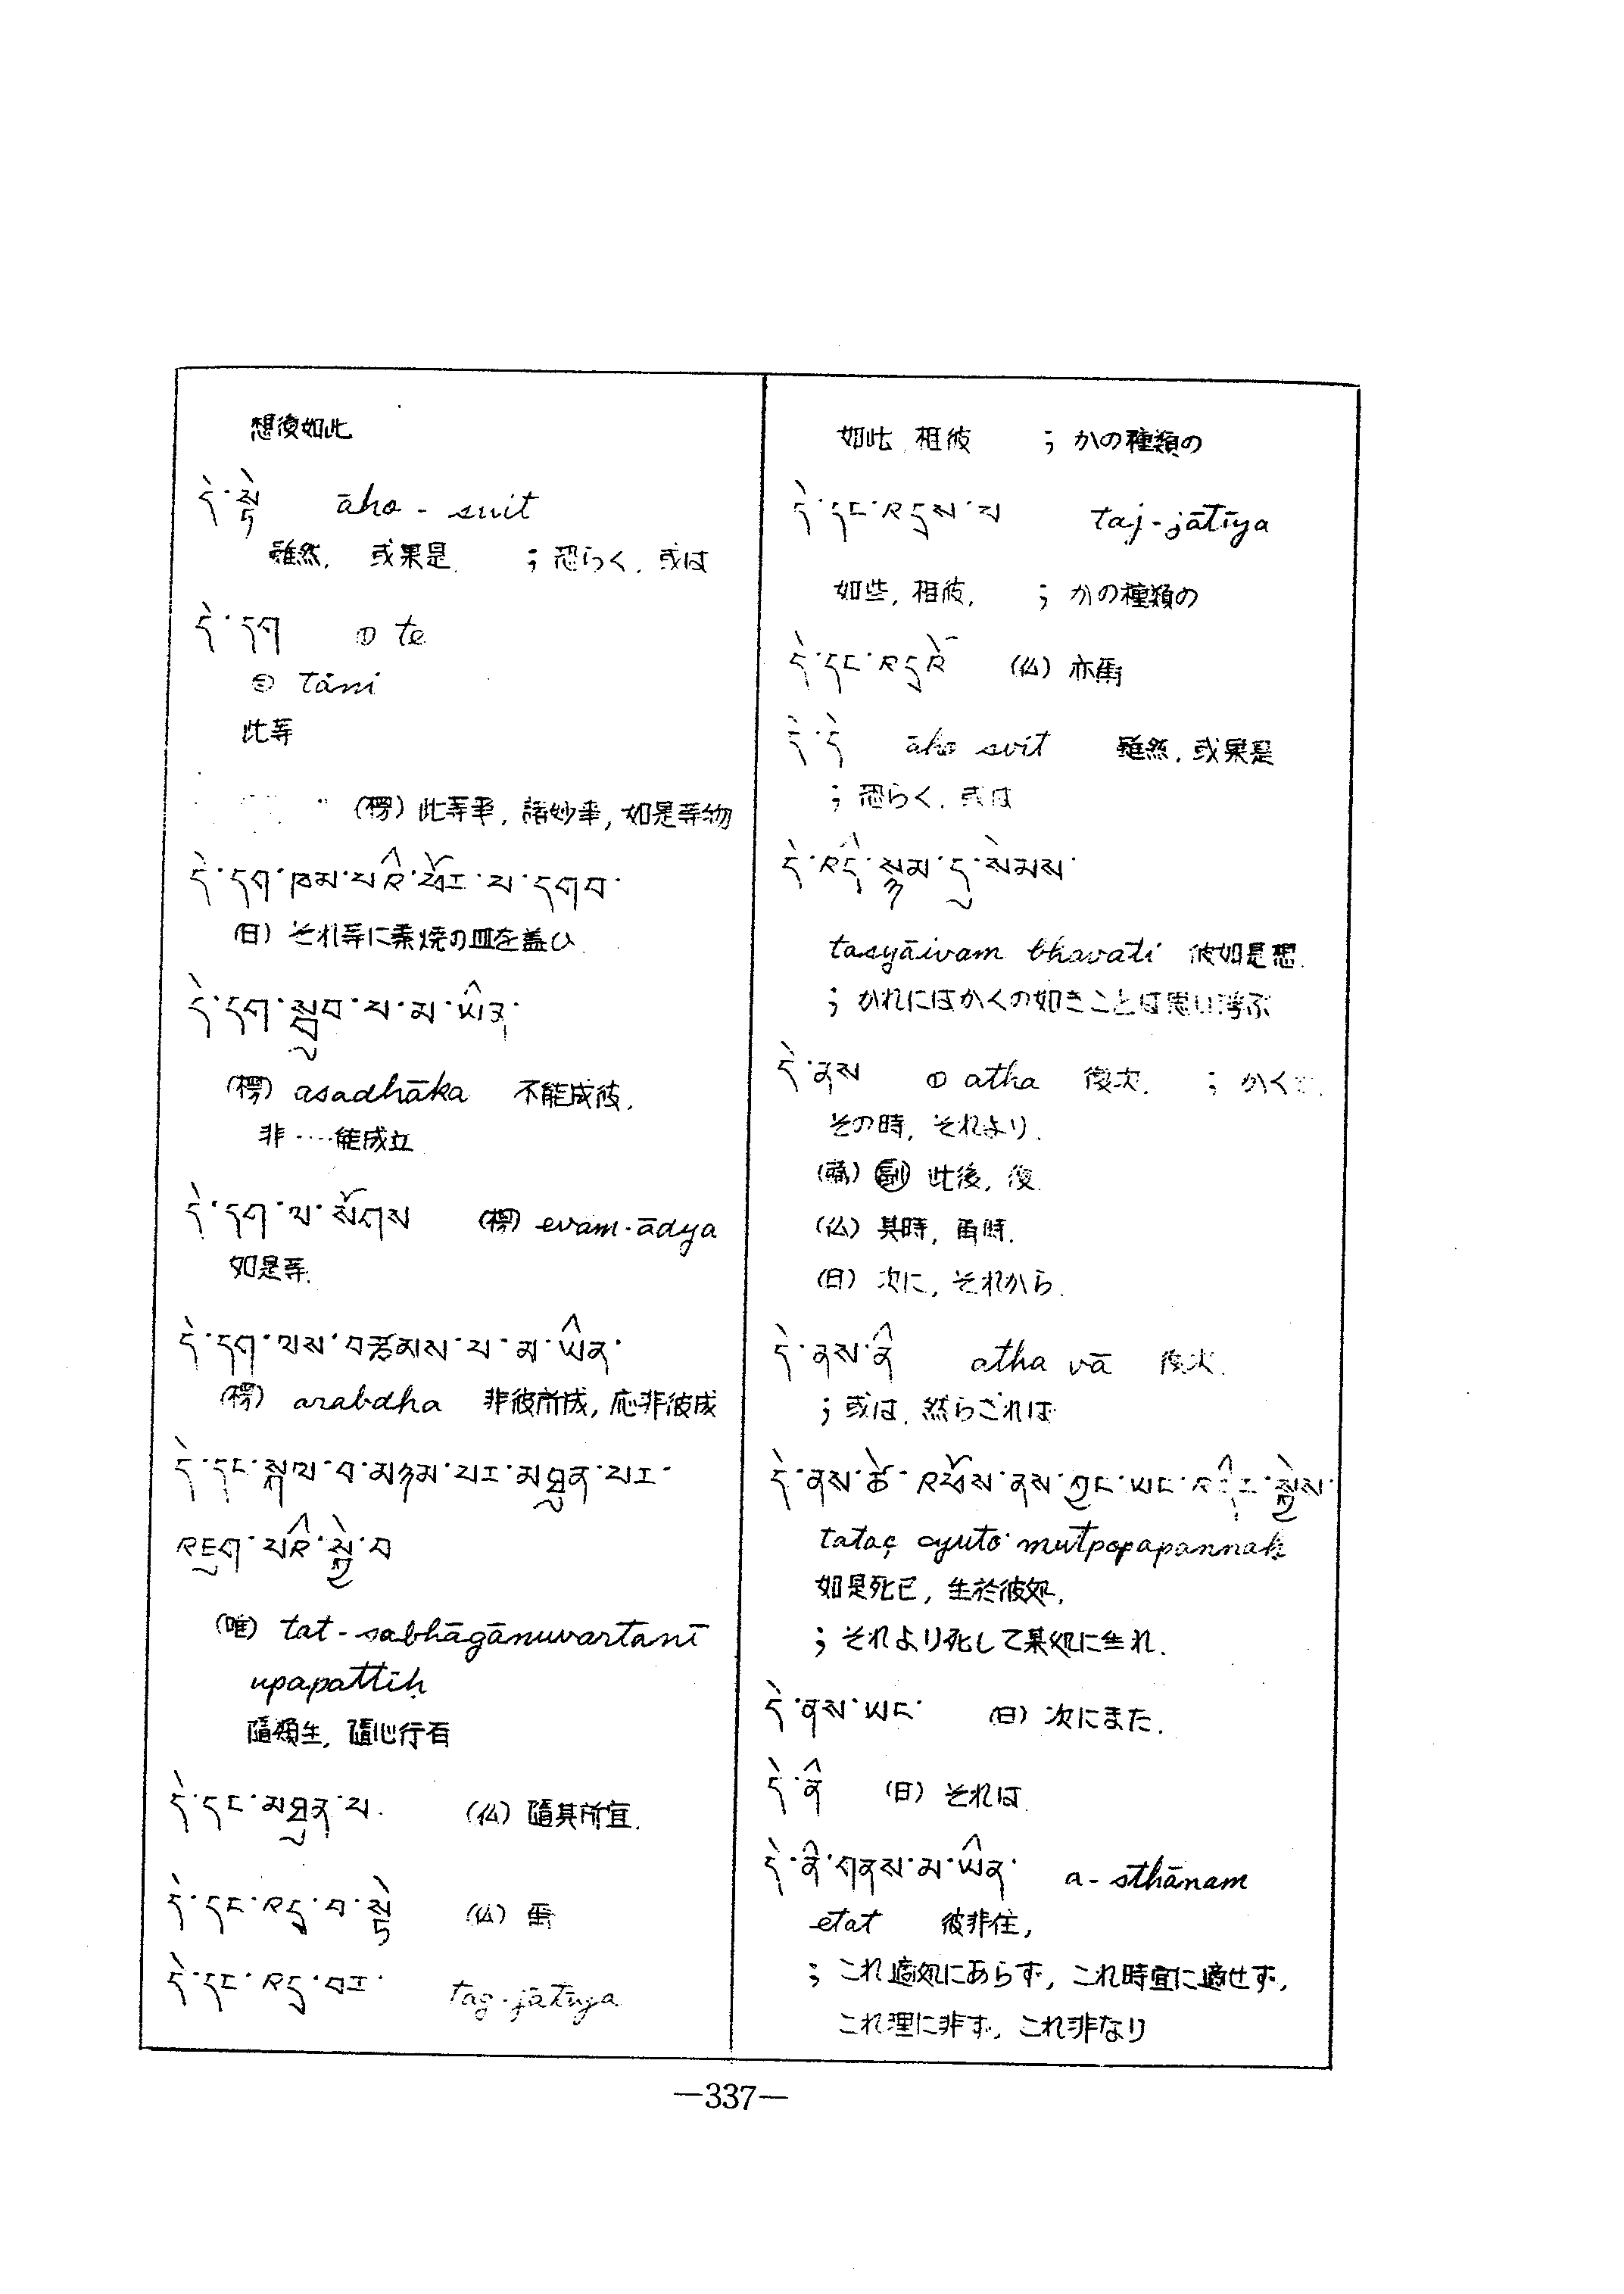 想復如此
དེ་སྟེ āho - suit
雖然, 或果是. ; 恐らく, 或は
དེ་དག ① te
② tāni
此等
〃 (楞) 此等事, 諸妙事, 如是等物
དེ་དག་ཁམ་པརི་ཕོར་པ་དགབ་
(日) それ等に素焼の皿を蓋ひ
དེ་དག་སྒྲུབ་པ་མ་ཡིན་
(楞) asadhāka 不能成彼,
非‥‥能成立
དེ་དག་ལ་སོགས (楞) evam-ādya
如是等.
དེ་དག་ལས་བརྩམས་པ་མ་ཡིན་
(楞) arabdha 非彼所成, 応非彼成
དེ་དང་སྐལ་བ་མཉམ་པར་མཐུན་པར་
འཇུག་པའི་སྐྱེ་བ
(唯) tat - sabhāgānuvartanī
upapattiḥ
隨類生, 隨心行有
དེ་དང་མཐུན་པ. (仏) 隨其所宜.
དེ་དང་འདྲ་བ་སྟེ (仏)
དེ་དང་འདྲ་བར་ tag-jātīya
如此 相彼 ; かの種類の
དེ་དང་འདུས་པ taj-jātīya
如些, 相彼, ; かの種類の
དེ་དང་འདྲའོ (仏)
དེ་དེ āho svit 雖然, 或果是
; 恐らく, 或は
དེ་འདི་སྙམ་དུ་སེམས་
tasyāivam bhavati 彼如是想.
; かれにはかくの如きことは思い浮ぶ
དེ་ནས ① atha 復次. ; かくて,
その時, それより.
(蔵) ㊙ 此後, 復.
(仏) 其時, 爾時.
(日) 次に, それから.
དེ་ནས་ནི atha vā 復次.
; 或は, 然らざれば
དེ་ནས་ཚེ་འཕོས་ནས་ཀྱང་ཡང་འདིར་སྐྱེས་
tataç cyuto mutpopapannaḥ
如是死已, 生於彼処,
; それより死して某処に生れ.
དེ་ནས་ཡང་ (日) 次にまた.
དེ་ནི (日) それは.
དེ་ནི་གནས་མ་ཡིན་ a - sthānam
etat 彼非住,
; これ適処にあらず, これ時宜に適せず,
これ理に非ず, これ非なり
—337—